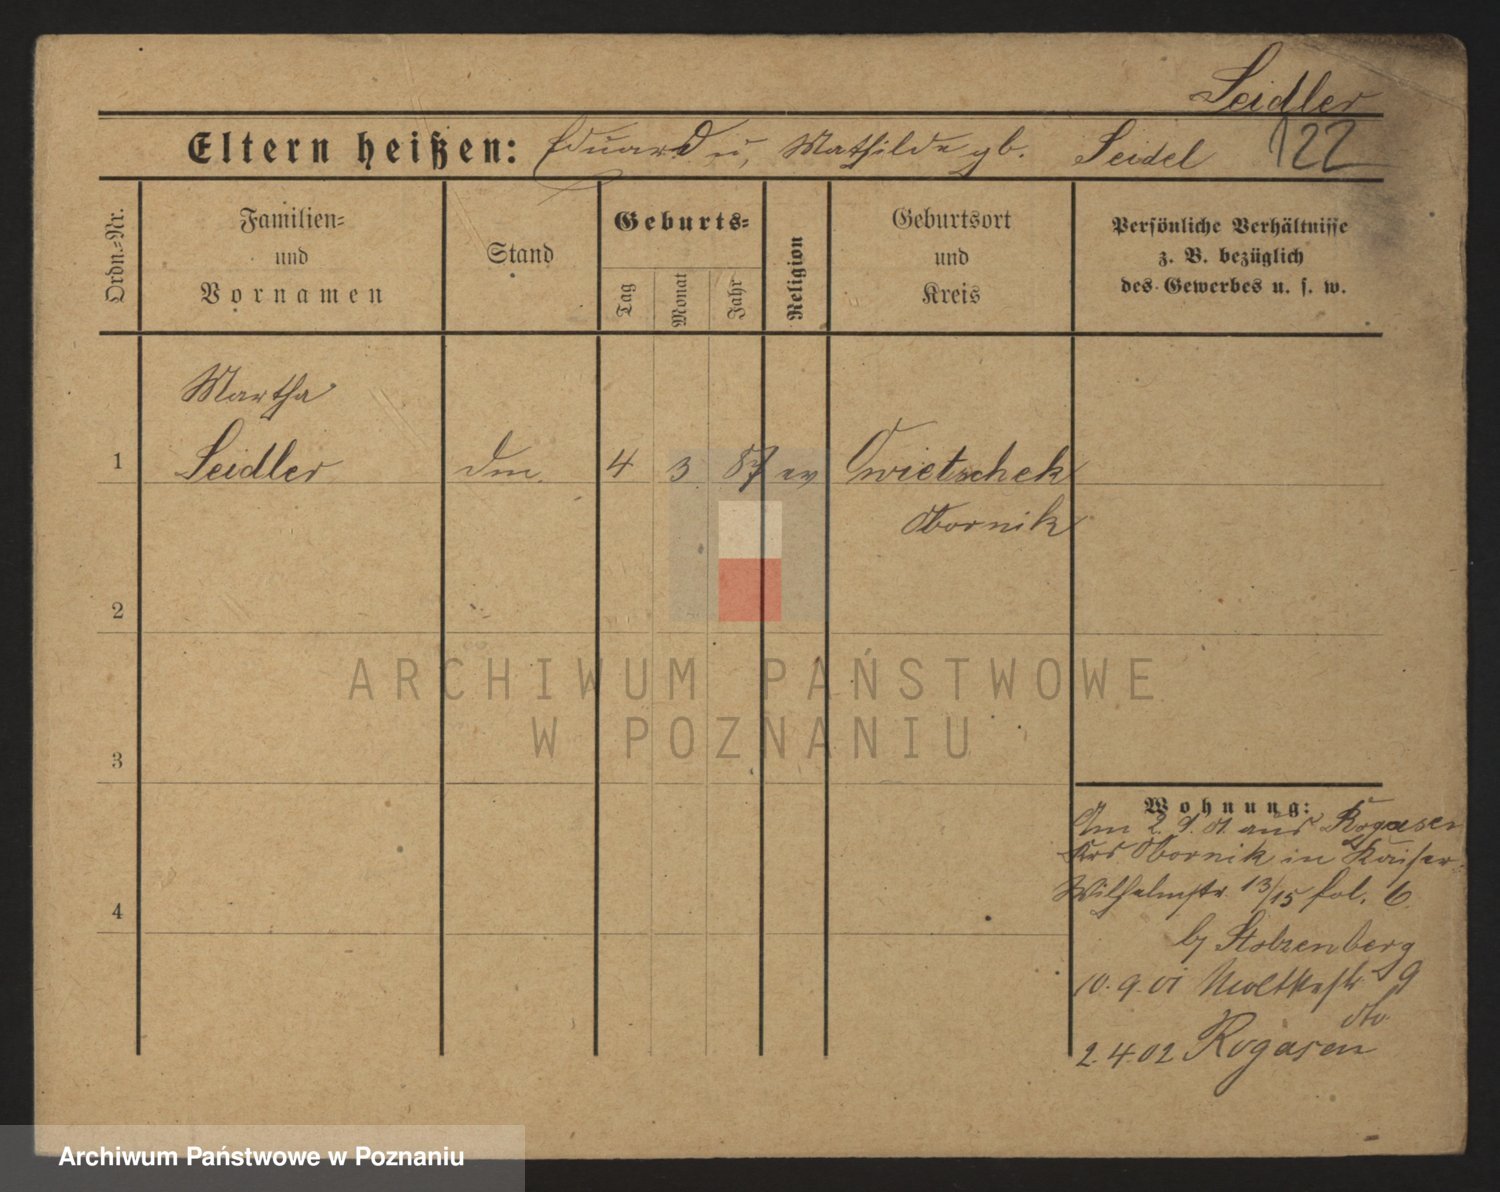 Seidler
Eltern heißen: Eduard u. Mathilde gb. Seidel 122
Ordn.-Nr.
Familien-
und
Vornamen
Stand
Geburts-
Tag
Monat
Jahr
Religion
Geburtsort
und
Kreis
Persönliche Verhältnisse
z. B. bezüglich
des Gewerbes u. s. w.
Martha
1 Seidler 4 3 87 ev Cwietschek
Obornik
2
ARCHIWUM PAŃSTWOWE
W POZNANIU
3
Wohnung:
Am 2. 9. 01 aus Rogasen
Krs Obornik in Kaiser-
Wilhelmstr. 13/15 fol. 6
4
b/ Stolzenberg
10. 9. 01 Moltkestr 9
dto
2. 4. 02 Rogasen
Archiwum Państwowe w Poznaniu